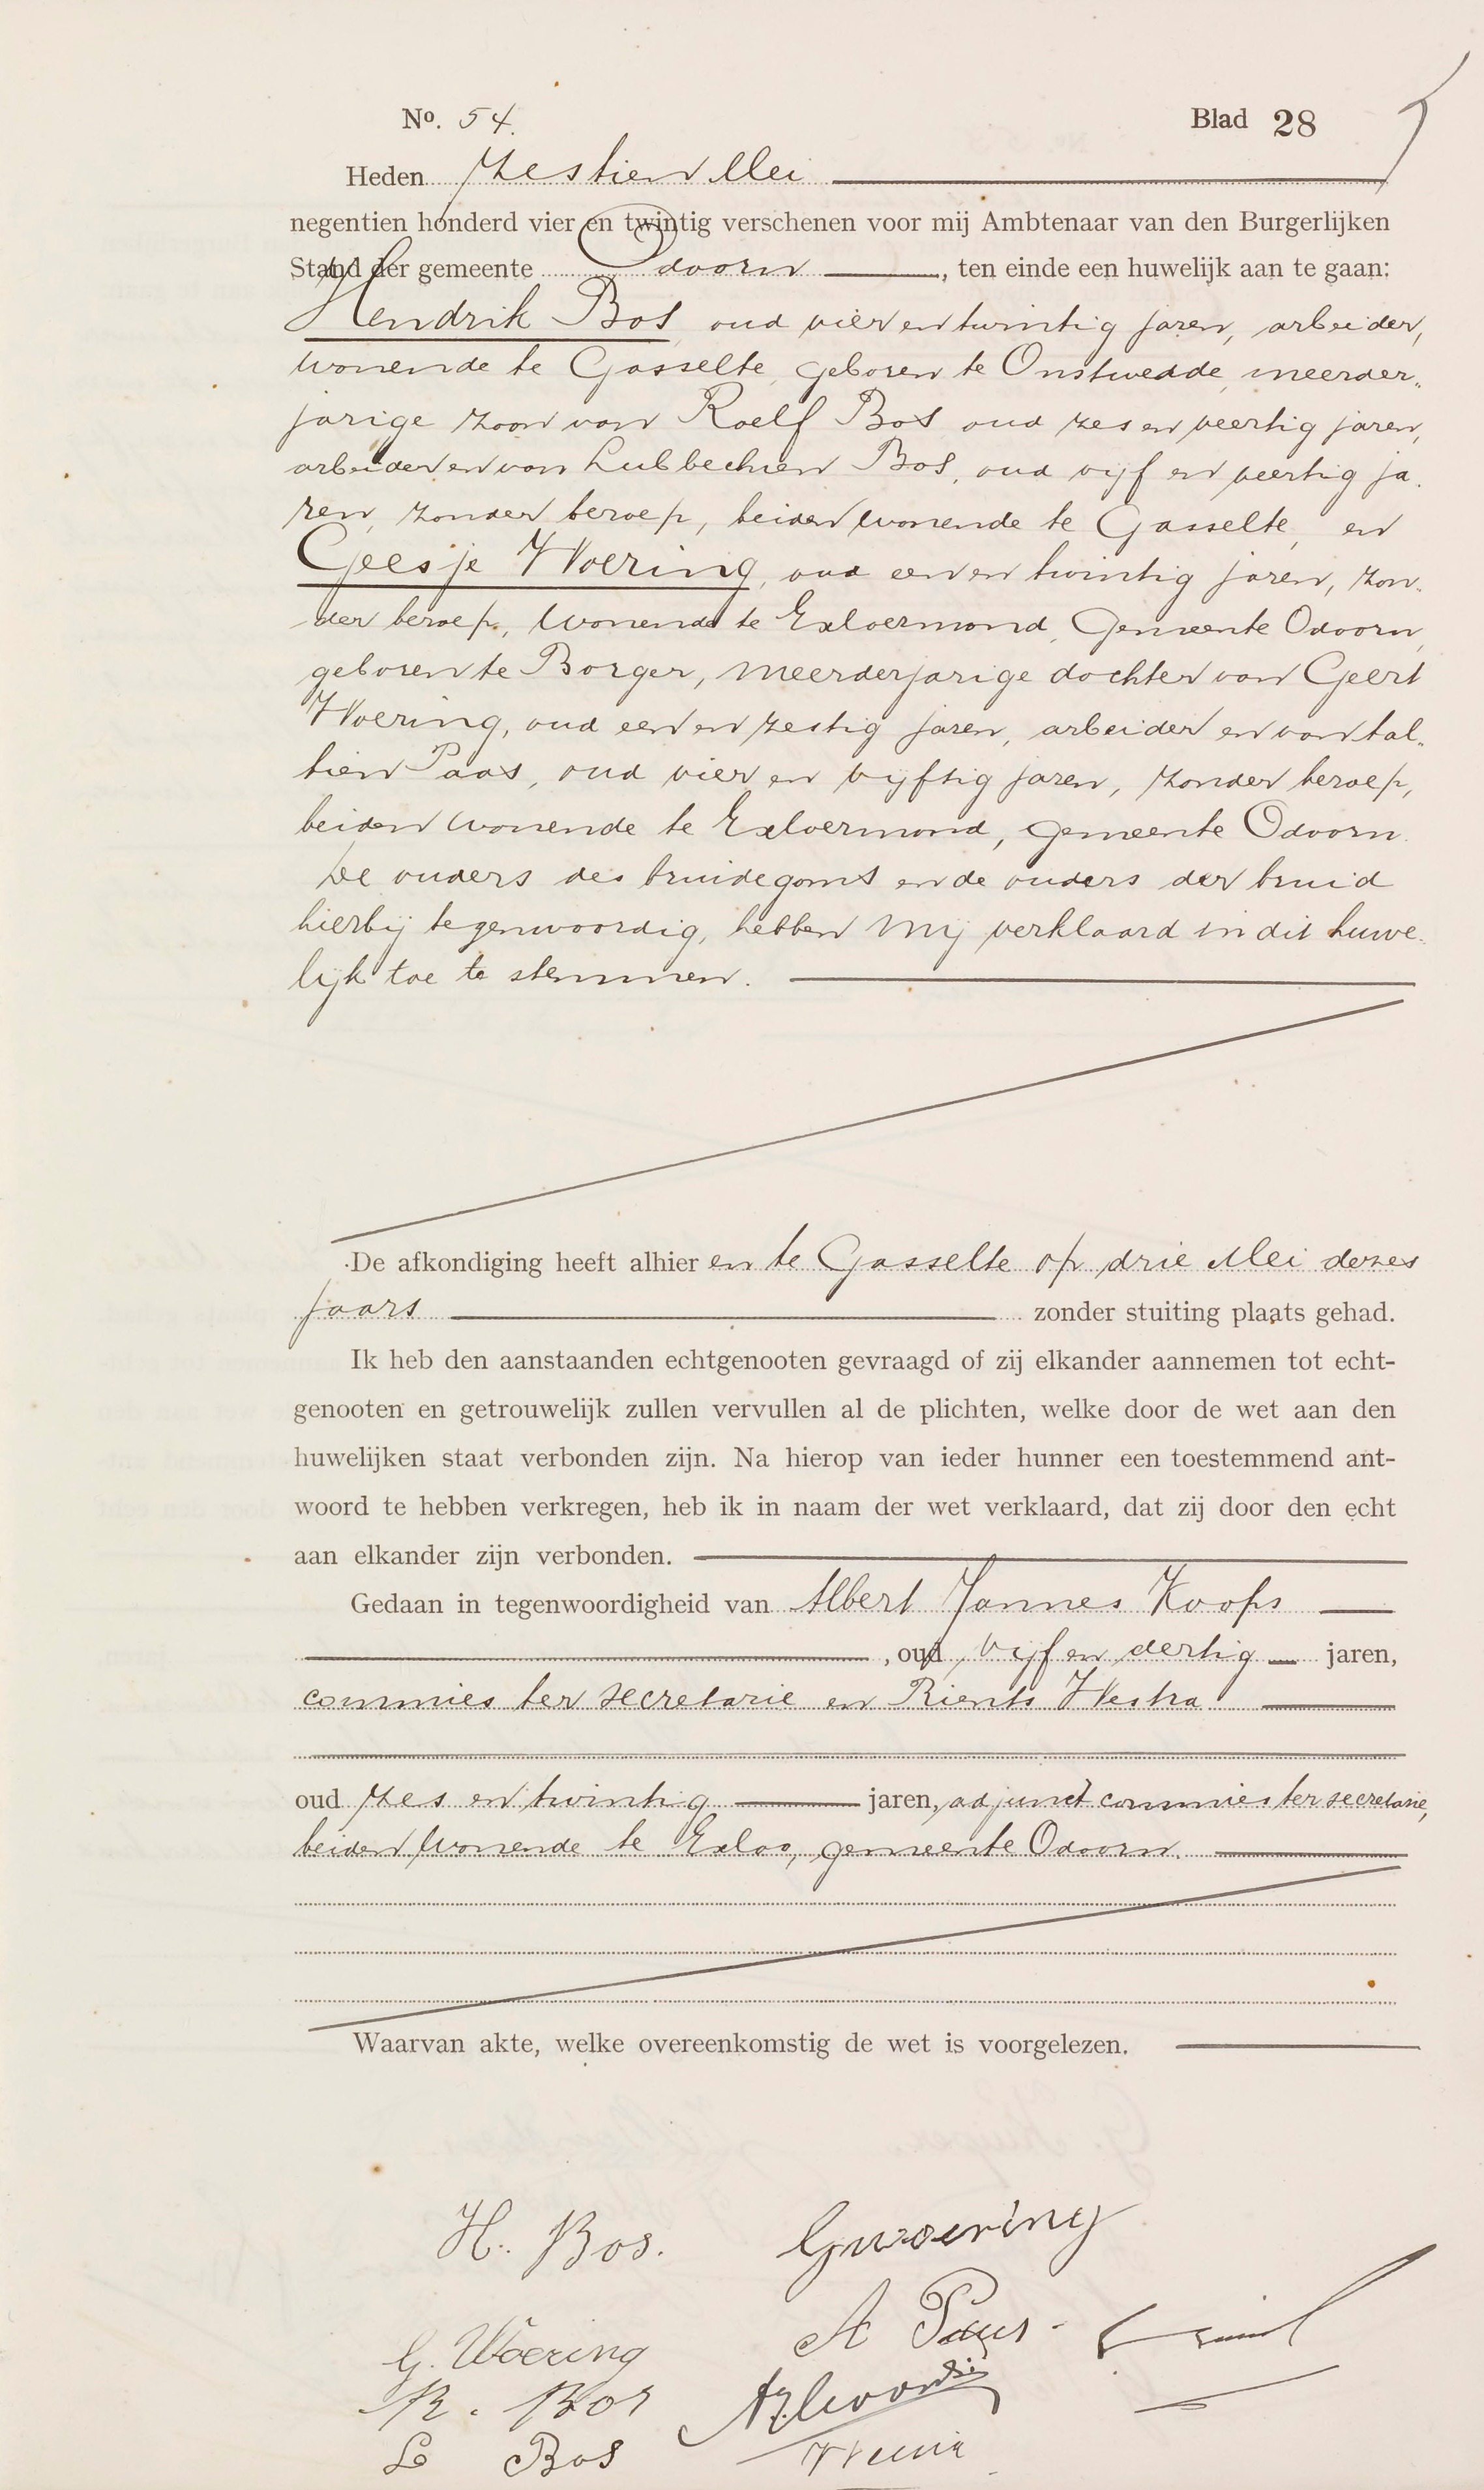 No. 54. Blad 28
Heden zestien Mei
negentien honderd vier en twintig verschenen voor mij Ambtenaar van den Burgerlijken
Stand der gemeente Odoorn, ten einde een huwelijk aan te gaan:
Hendrik Bos, oud vier en twintig jaren, arbeider,
wonende te Gasselte, geboren te Onstwedde, meerder-
jarige zoon van Roelf Bos, oud zes en veertig jaren,
arbeider en van Lubbechien Bos, oud vijf en veertig ja-
ren, zonder beroep, beiden wonende te Gasselte, en
Geesje Woering, oud een en twintig jaren, zon-
der beroep, wonende te Exloermond, Gemeente Odoorn,
geboren te Borger, meerderjarige dochter van Geert
Woering, oud een en zestig jaren, arbeider en van Aal-
tien Paas, oud vier en vijftig jaren, zonder beroep,
beiden wonende te Exloermond, gemeente Odoorn.
De ouders des bruidegoms en de ouders der bruid
hierbij tegenwoordig, hebben mij verklaard in dit huwe-
lijk toe te stemmen.
De afkondiging heeft alhier en te Gasselte op drie Mei dezes
jaars zonder stuiting plaats gehad.
Ik heb den aanstaanden echtgenooten gevraagd of zij elkander aannemen tot echt-
genooten en getrouwelijk zullen vervullen al de plichten, welke door de wet aan den
huwelijken staat verbonden zijn. Na hierop van ieder hunner een toestemmend ant-
woord te hebben verkregen, heb ik in naam der wet verklaard, dat zij door den echt
aan elkander zijn verbonden.
Gedaan in tegenwoordigheid van Albert Jannes Koops
, oud vijf en dertig jaren,
commies ter secretarie en Rients Westra
oud zes en twintig jaren, adjunct commies ter secretarie,
beiden wonende te Exloo, gemeente Odoorn.
Waarvan akte, welke overeenkomstig de wet is voorgelezen.
H. Bos. G Woering
G. Woering A Paas
R. Bos
L Bos